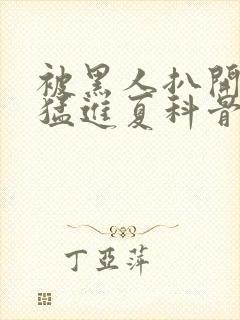 被黑人扒開
猛進夏科骨
丁亞萍